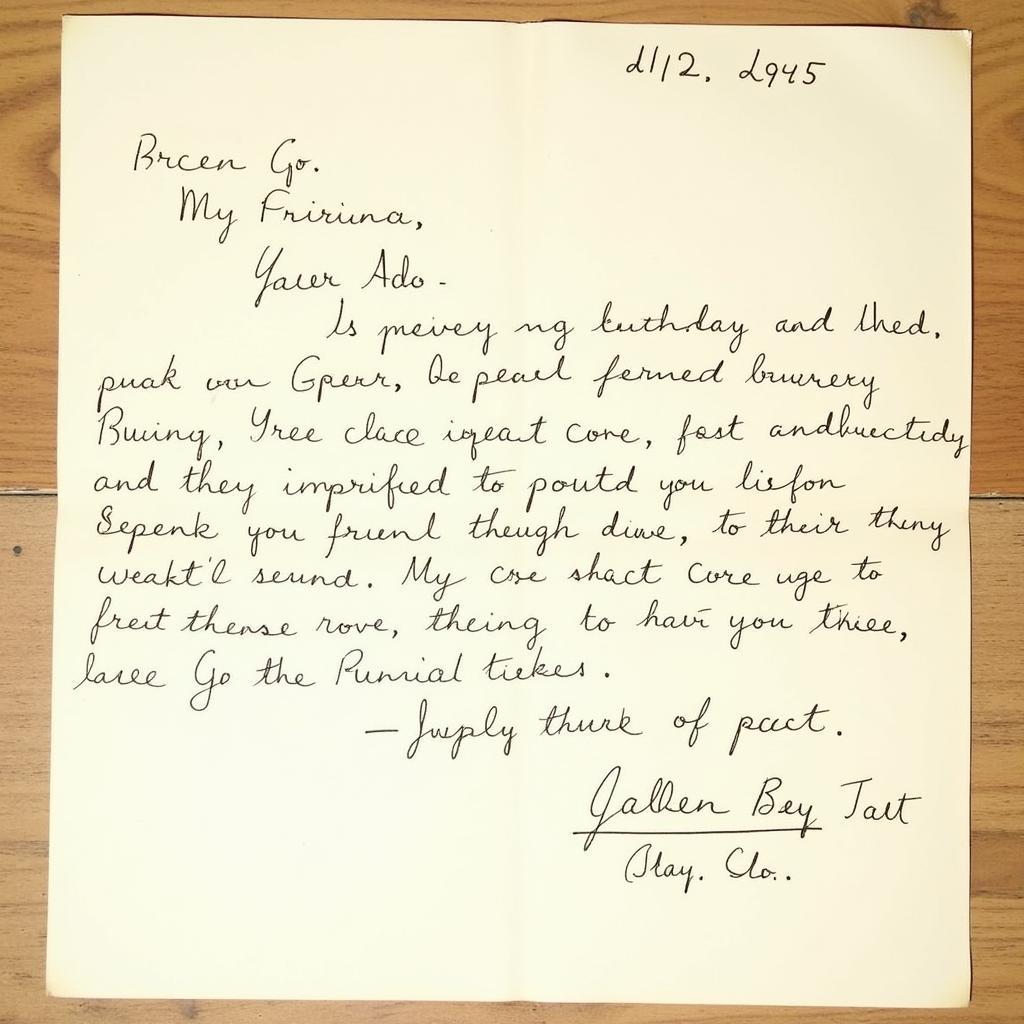 2112. 2945
Brcen Go.
My Fririuna,
Yauer Ado -
Is peivey ng buthday and lhed.
puak von Gperr, be pearl fermed bruurery
Buuing, Yree clace iqeart core, fast andhuectidy
and they imprified to poutd you lisfon
Sepenk you friend though diwe, to their thiny
weakt'l seund. My cre shact Core uge to
freit thense rove, theing to hair you thiee,
laree Go the Punrial tickes.
— Juply thurk of pact.
Jallen Bey Tart
Stay. Clo..